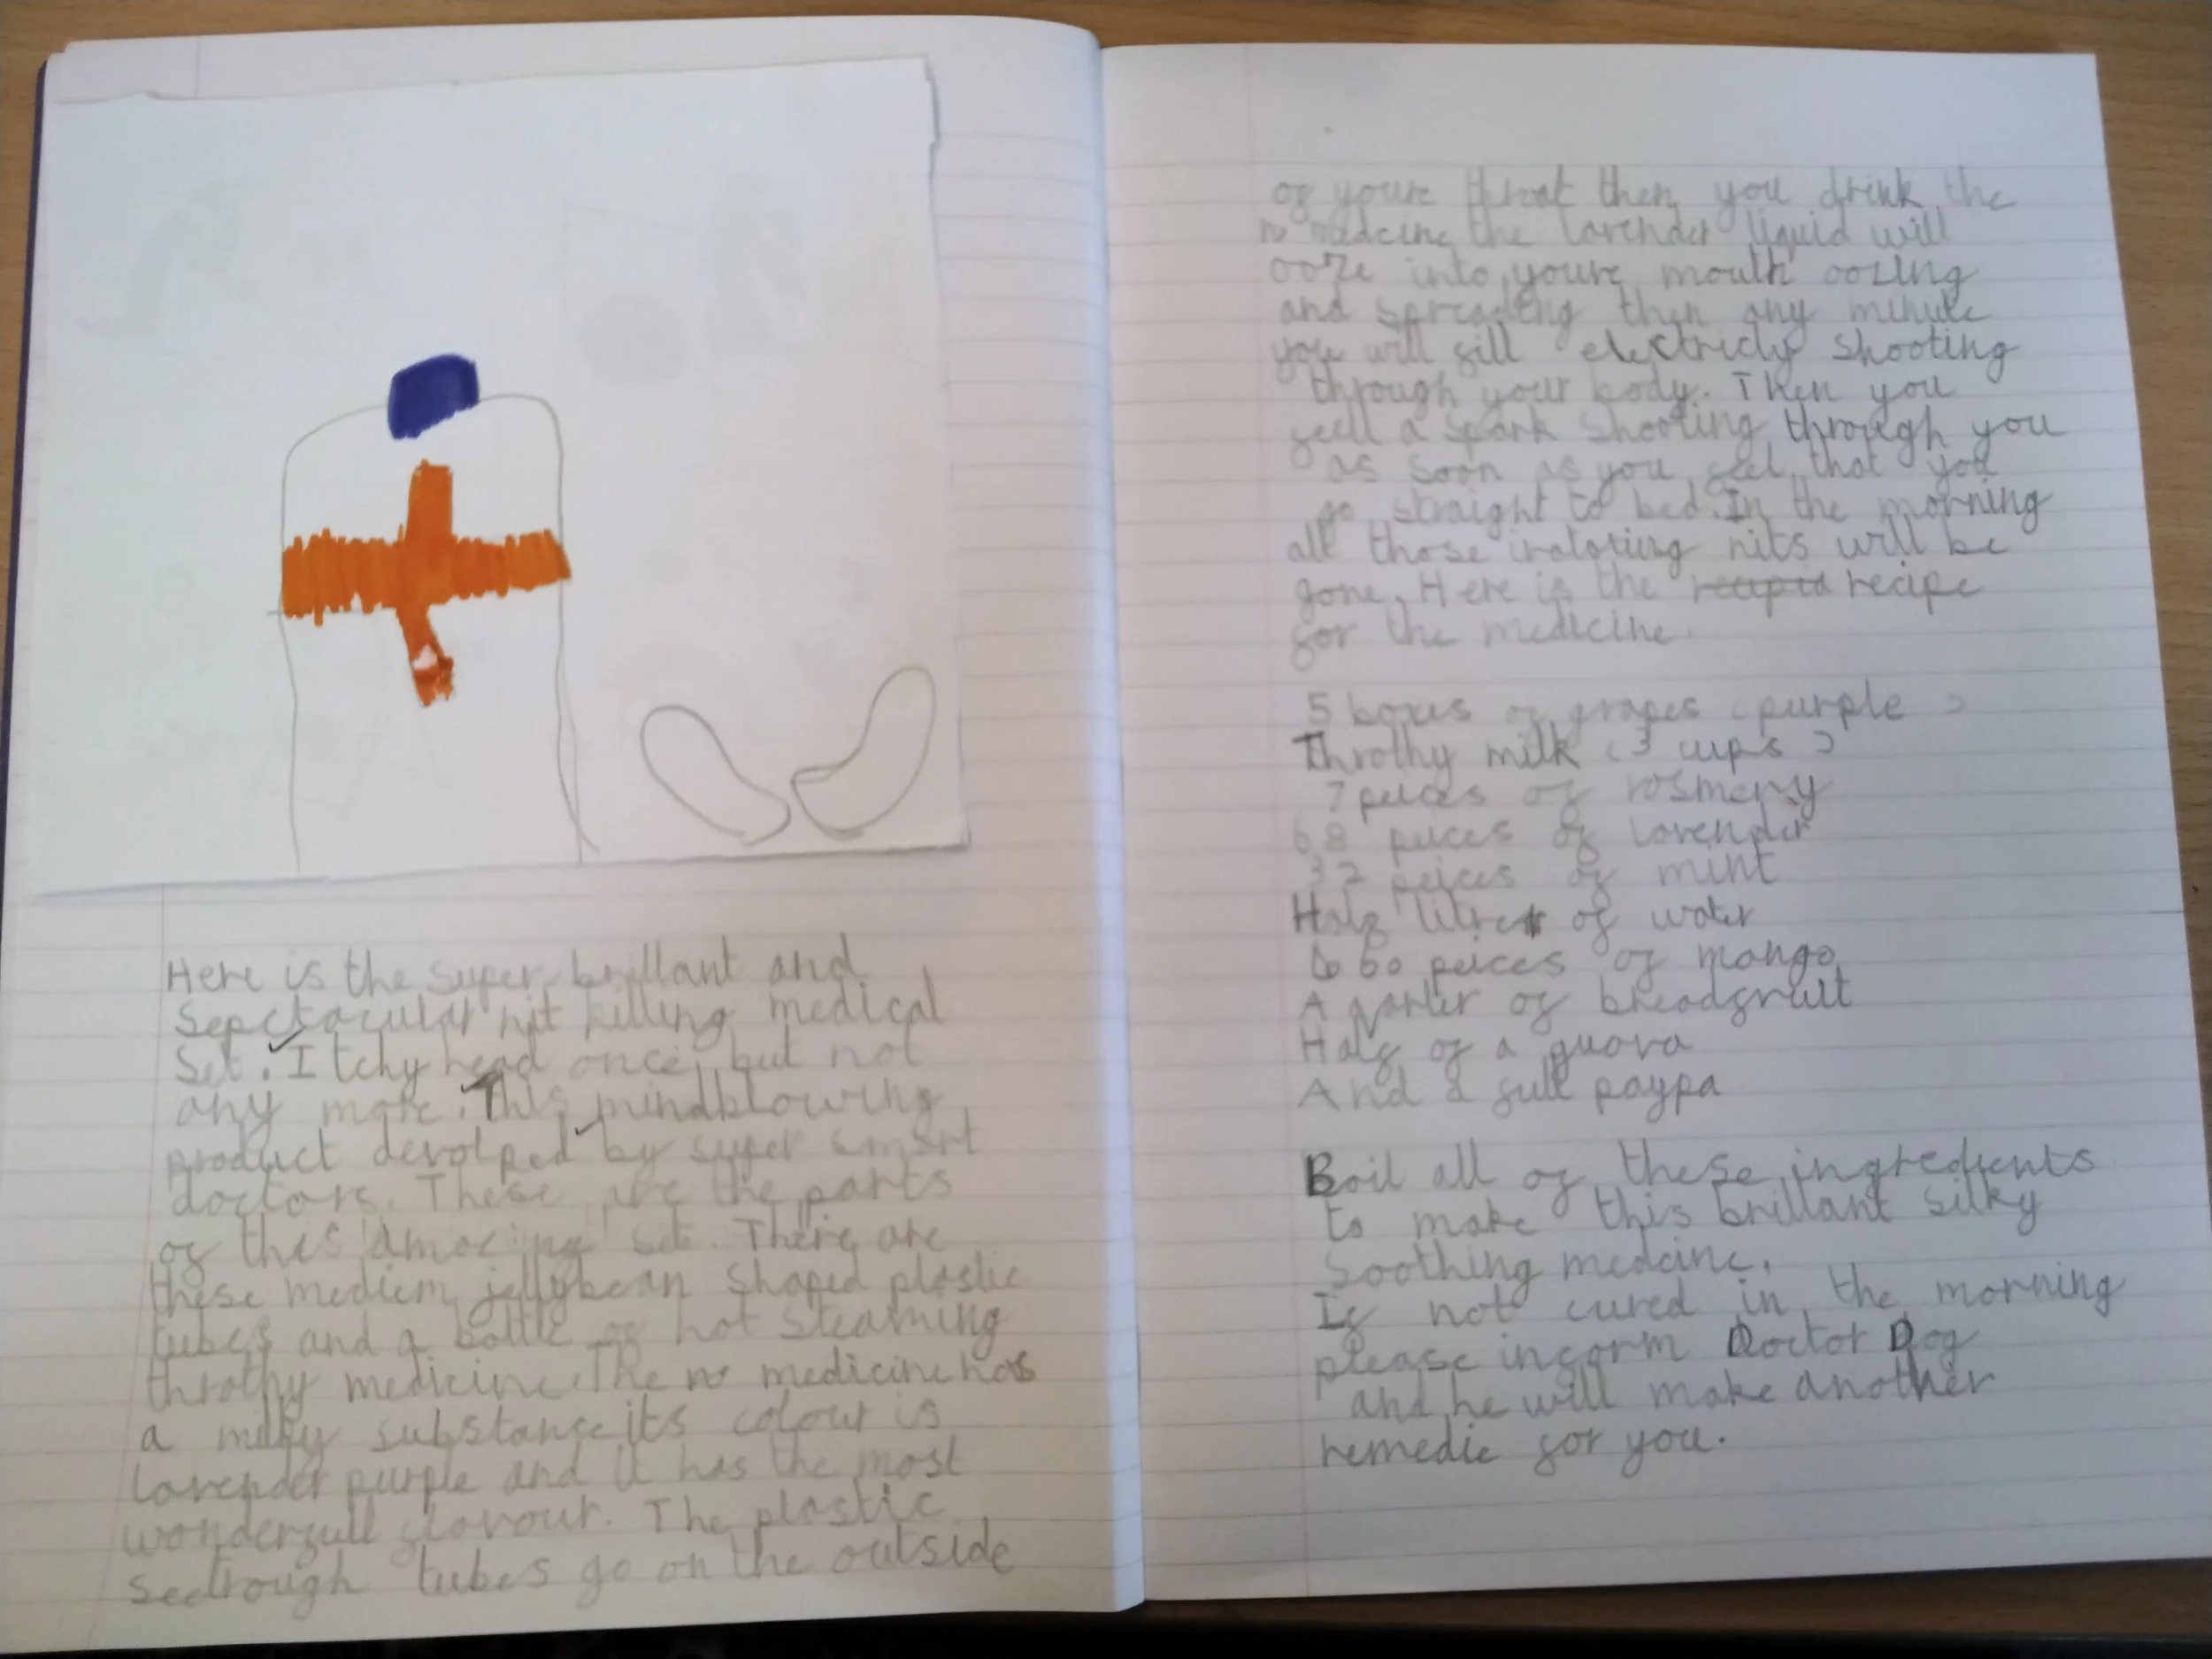 Here is the super brillant and
Sepctacular nit killing medical
Set. Itchy head once, but not
any more. This mindblowing
product devolped by super smart
doctors. These are the parts
of this amaceing set. There are
these medium jellybean shaped plastic
tubes and a bottle of hot steaming
throthy medicine. The medicine has
a milky substance its colour is
lavender purple and it has the most
wonderfull flavour. The plastic
seetrough tubes go on the outside
of youre throat then you drink the
medcine the lavender liquid will
ooze into youre mouth oozing
and spreading then any minute
you will fill electricly shooting
through your body. Then you
feell a spark shooting through you
as soon as you feel that you
go straight to bed. In the morning
all those nits will be
gone. Here is the recipe
for the medicine.
5 boxes of grapes (purple)
Throthy milk (3 cups)
7 peices of rosmery
68 peices of lavender
32 peices of mint
Half litre of water
60 peices of mango
A qarter of breadfruit
Half of a guava
And a full paypa
Boil all of these ingredients
to make this brillant silky
Soothing medcine.
If not cured in the morning
please inform Doctor Dog
and he will make another
remedie for you.